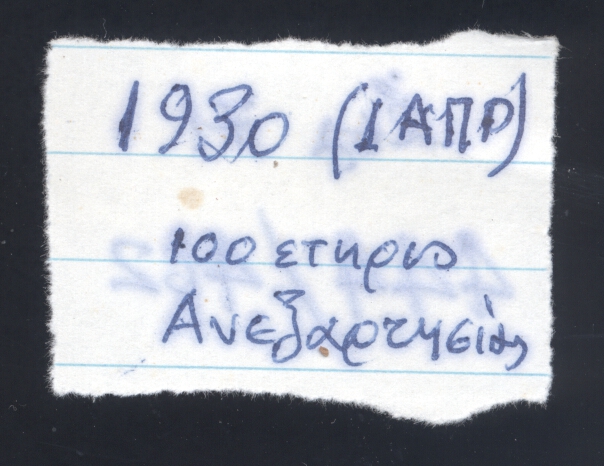 1930 (1 ΑΠΡ)
100 ετηρις
Ανεξαρτησίας